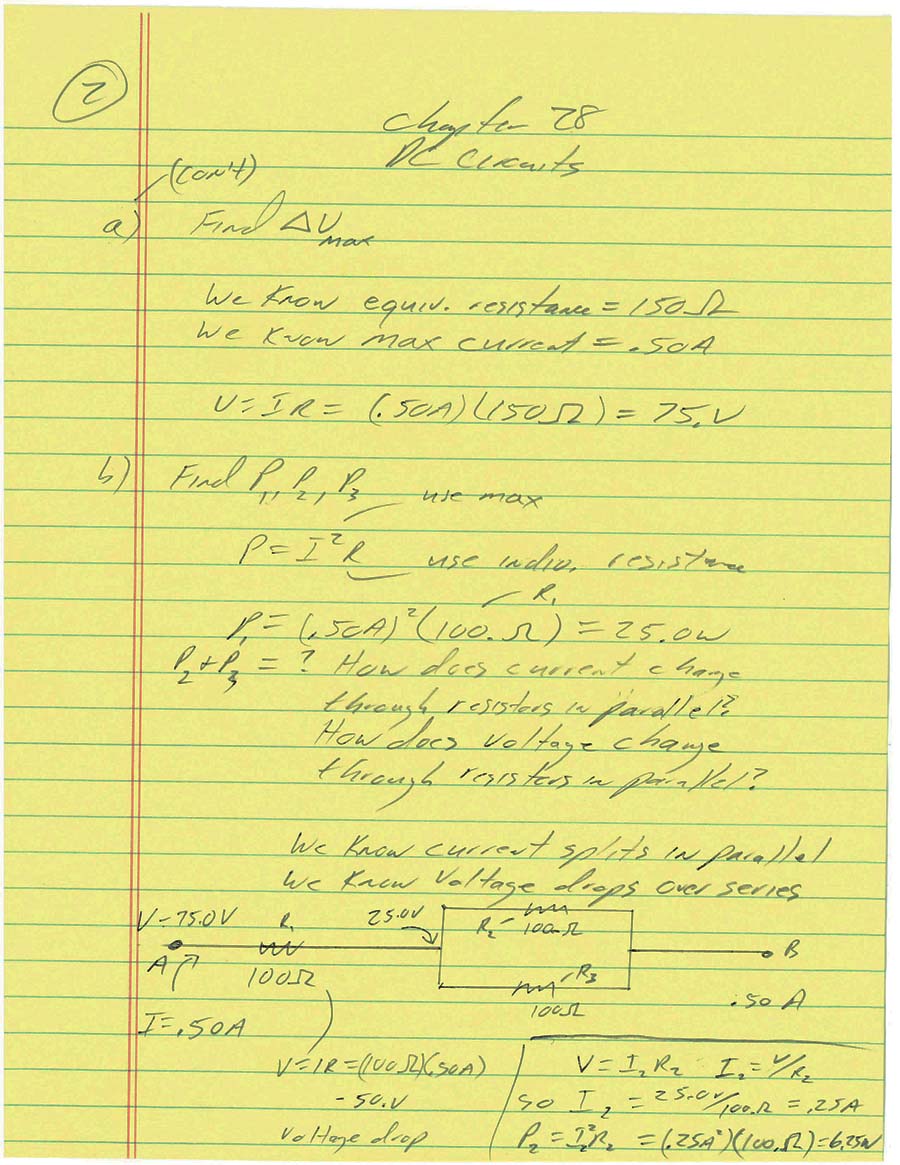 2
Chapter 28
DC Circuits
(con't)
a) Find ΔV max
We know equiv. resistance = 150Ω
We know max current = .50A
V = IR = (.50A)(150Ω) = 75.V
b) Find P1, P2, P3
use max
P = I²R use indiv. resistance
R1
P1 = (.50A)²(100.Ω) = 25.0W
P2 + P3 = ? How does current change
through resistors in parallel?
How does voltage change
through resistors in parallel?
We know current splits in parallel
We know voltage drops over series
V = 75.0V R1 25.0V R2 100Ω
A 100Ω B
R3
100Ω .50 A
I = .50A
V = IR = (100Ω)(.50A)
- 50.V
voltage drop
V = I2R2 I2 = V/R2
so I2 = 25.0V/100.Ω = .25A
P2 = I2²R2 = (.25A²)(100.Ω) = 6.25W